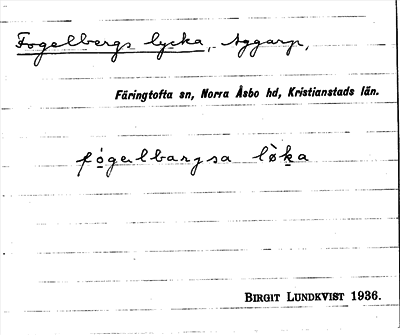 Fogelbergs lycka, Aggarp,
Färingtofta sn, Norra Åsbo hd, Kristianstads län.
BIRGIT LUNDKVIST 1936.